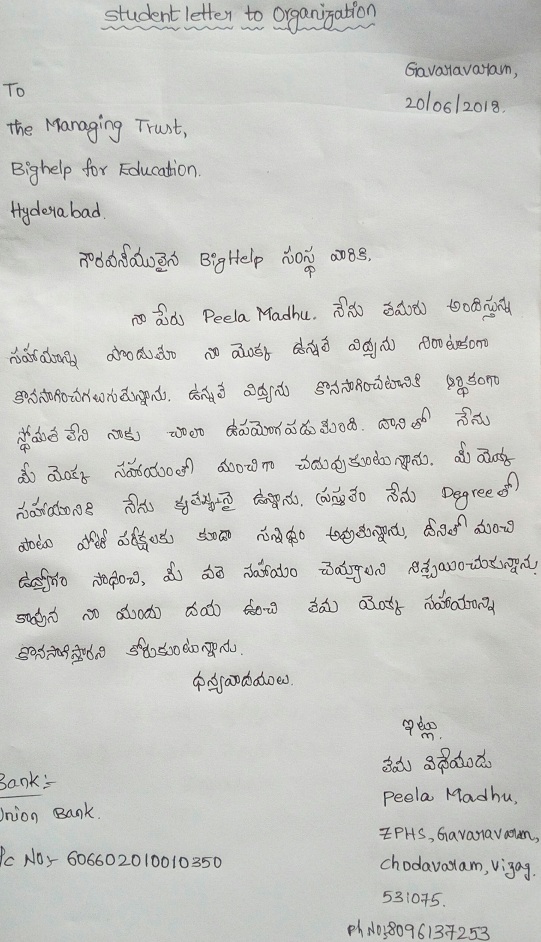 student letter to Organization
Gavaravaram,
20/06/2018.
To
The Managing Trust,
Bighelp for Education.
Hyderabad.
గౌరవనీయులైన BigHelp సంస్థ వారికి,
నా పేరు Peela Madhu. నేను తమరు అందిస్తున్న
సహాయాన్ని పొందుతూ నా యొక్క ఉన్నత విద్యను నిరాటంకంగా
కొనసాగించగలుగుతున్నాను. ఉన్నత విద్యను కొనసాగించటానికి ఆర్థికంగా
స్థోమత లేని నాకు చాలా ఉపయోగపడుతుంది. దానితో నేను
మీ యొక్క సహాయంతో మంచిగా చదువుకుంటున్నాను. మీ యొక్క
సహాయానికి నేను కృతజ్ఞుడనై ఉన్నాను. ప్రస్తుతం నేను Degreeతో
పాటు పోటీ పరీక్షలకు కూడా సన్నిద్ధం అవుతున్నాను. దీనితో మంచి
ఉద్యోగం సాధించి, మీ వలె సహాయం చెయ్యాలని నిశ్చయించుకున్నాను.
కావున నా యందు దయ ఉంచి తమ యొక్క సహాయాన్ని
కొనసాగిస్తారని కోరుకుంటున్నాను.
ధన్యవాదములు.
ఇట్లు,
తమ విధేయుడు
Peela Madhu,
ZPHS, Gavaravaram,
Chodavaram, Vizag.
531075.
Ph No:8096137253
Bank:-
Union Bank.
A/c No:- 606602010010350